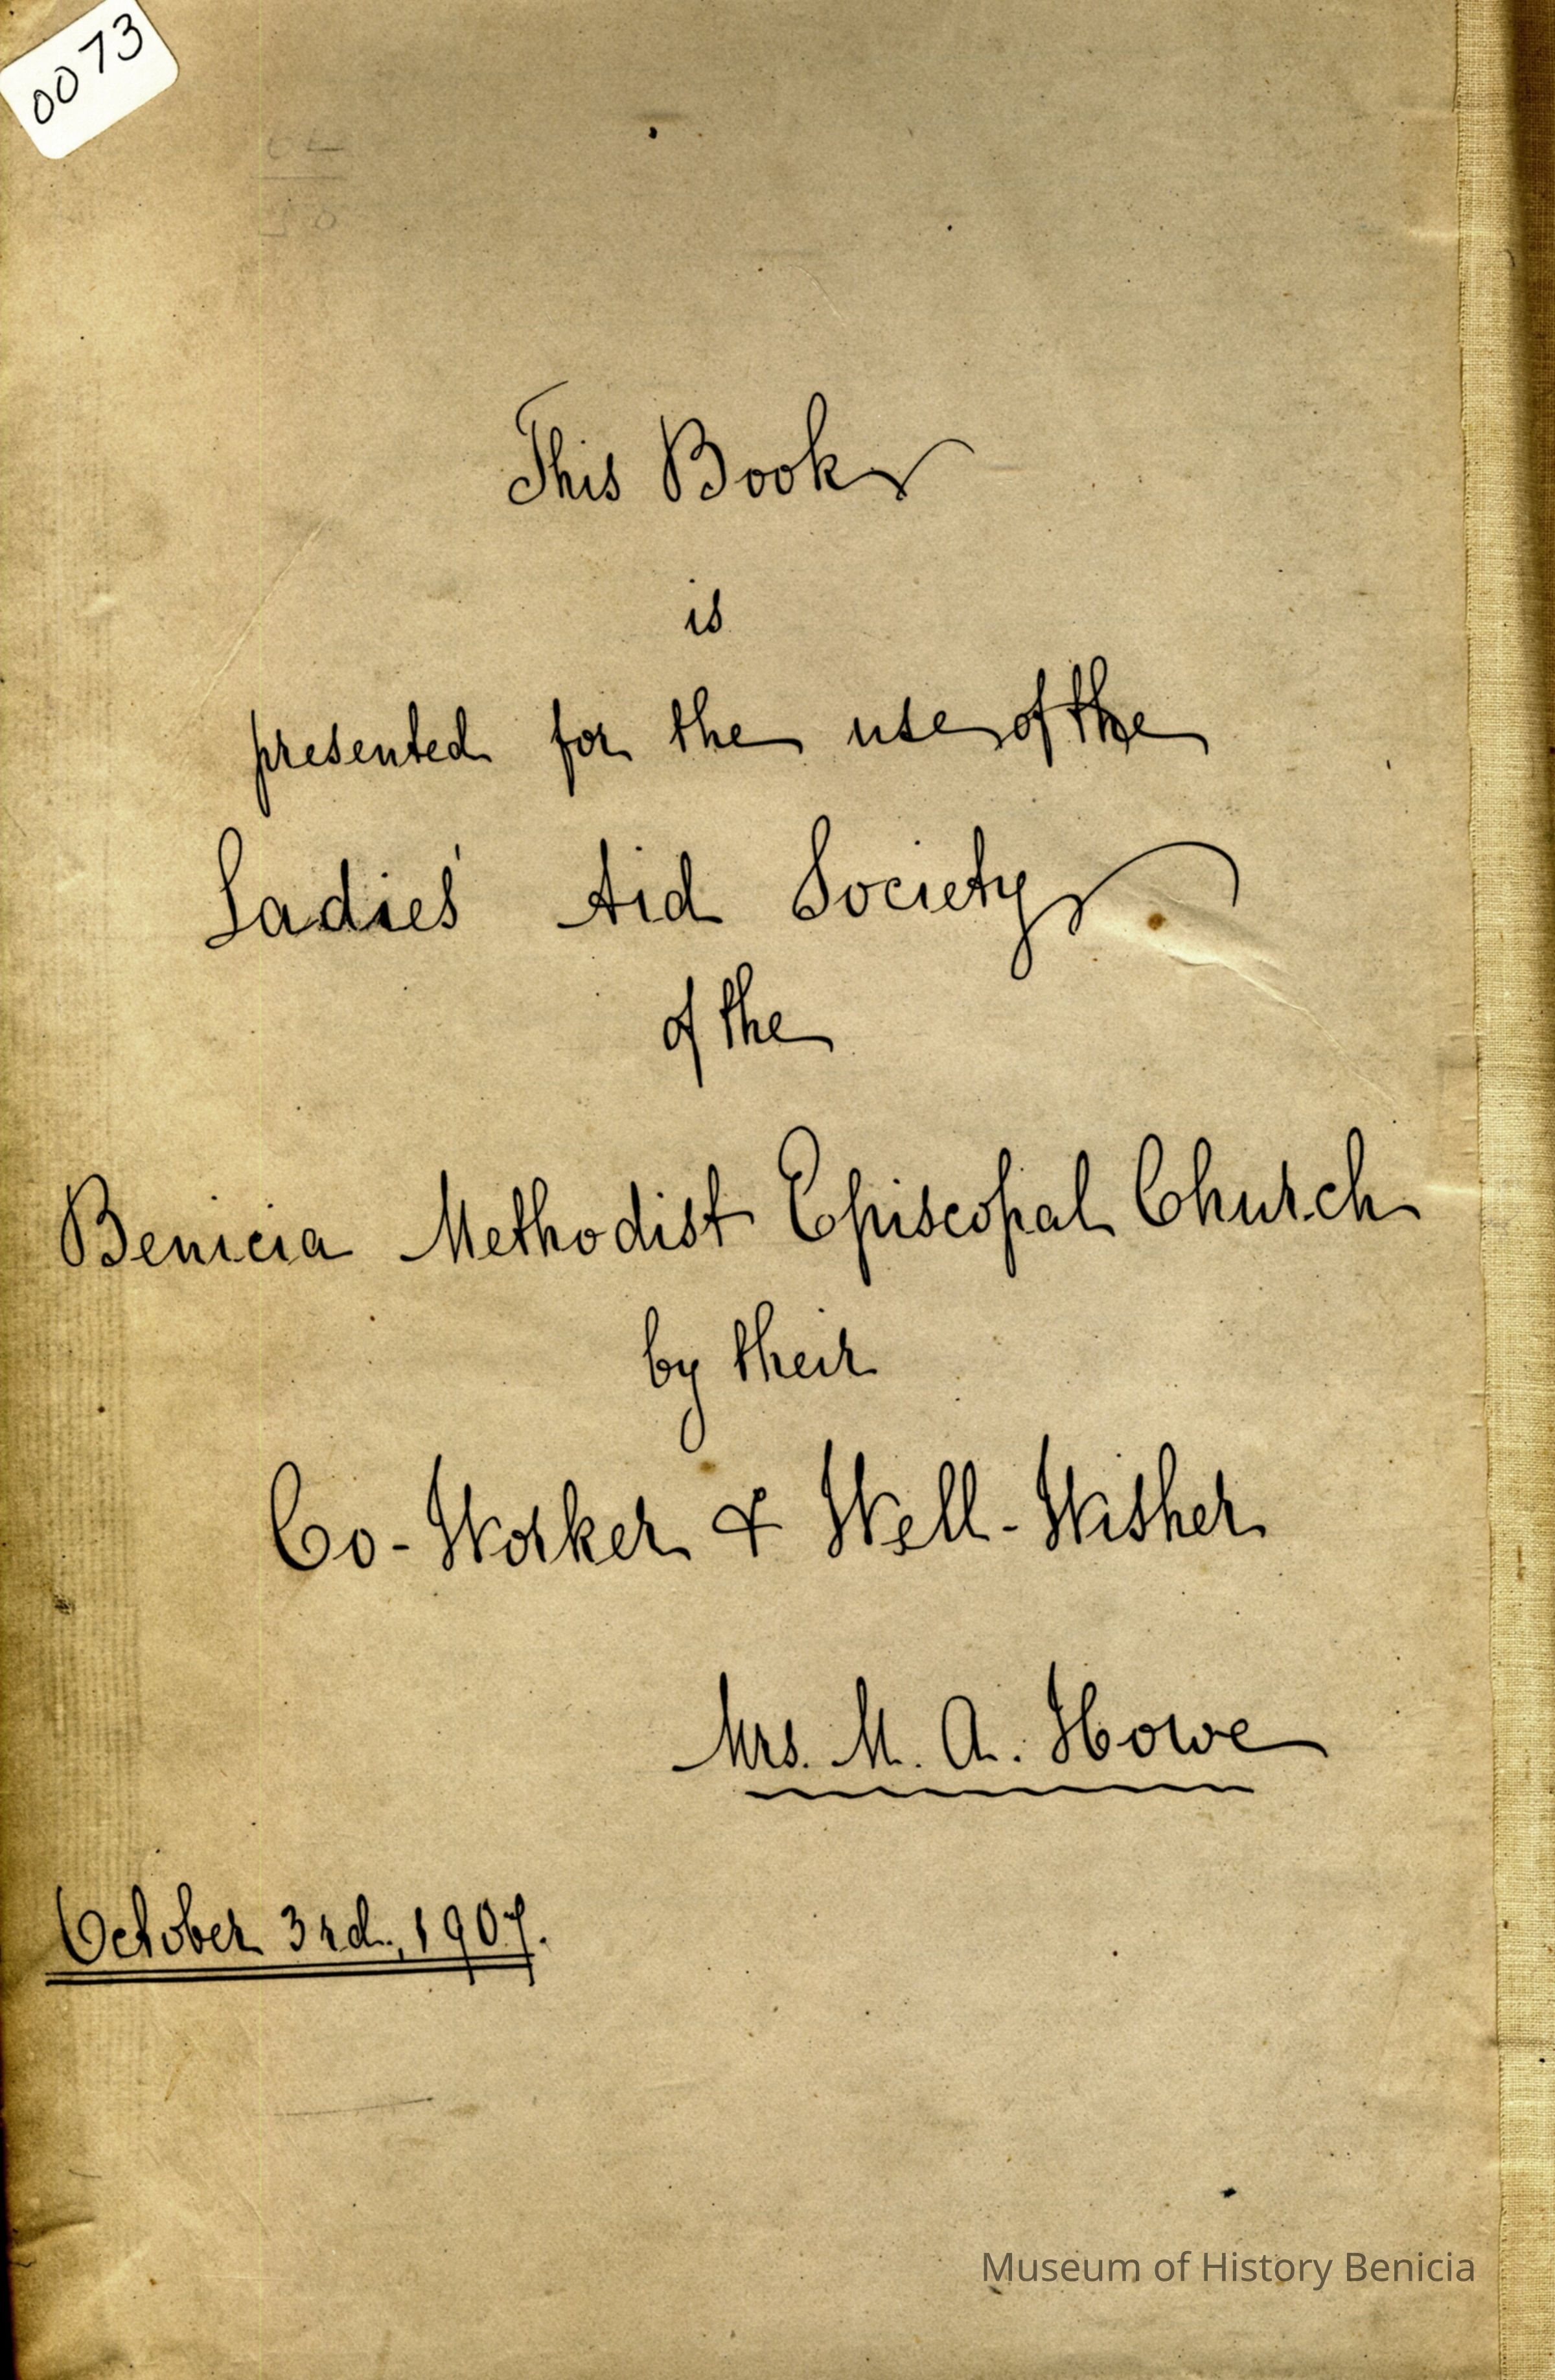 0073
This Book
is
presented for the use of the
Ladies' Aid Society
of the
Benicia Methodist Episcopal Church
by their
Co-Worker & Well-Wisher
Mrs. M. A. Howe
October 3rd., 1907.
Museum of History Benicia